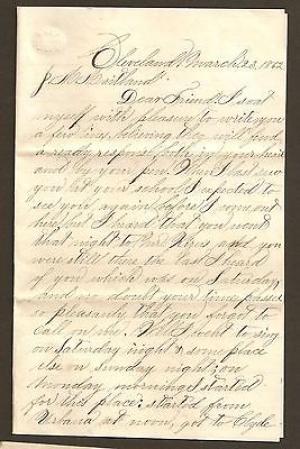 Cleveland March 23, 1862
Dear Friend: I seat
myself with pleasure to write you
a few lines, believing they will find
a ready response both in your heart
and by your pen. When I last saw
you at your school I expected to
see you again before I come out
here, but I heard that you went
that night to Mr. and you
were still there the last I heard
of you which was on Saturday,
and no doubt your time passed
so pleasantly that you forgot to
call on me. Well I went to sing
on Saturday night & some place
else on Sunday night; on
Monday morning I started
for this place: started from
Urbana at noon, got to Clyde